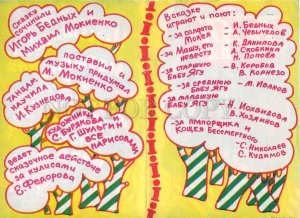 Сказку
сочинили
Игорь Бедных и
Михаил Мокиенко
поставил
музыку придумал
М. Мокиенко
танцам
научила
И. Кузнецова
Художники
С. Бурякова и
Г. Шульгин
все
нарисовали
ведет
сказочное действие
за кулисами
Федорова
В сказке
играют и поют:
- за солдата
Мокея
- И. Бедных
- А. Чевычелов
- за Машу, его
невесту
- К. Данилова
А. Скобкина
Н. Попова
- за старшую
бабу Ягу
- В. Коробов
В. Корнезо
- за среднюю
бабу Ягу
- М. Иванов
- за младшую
бабу Ягу
В. Хозяинов
- за прапорщика и
Кощея Бессмертного
- С. Николаев
С. Кудимов